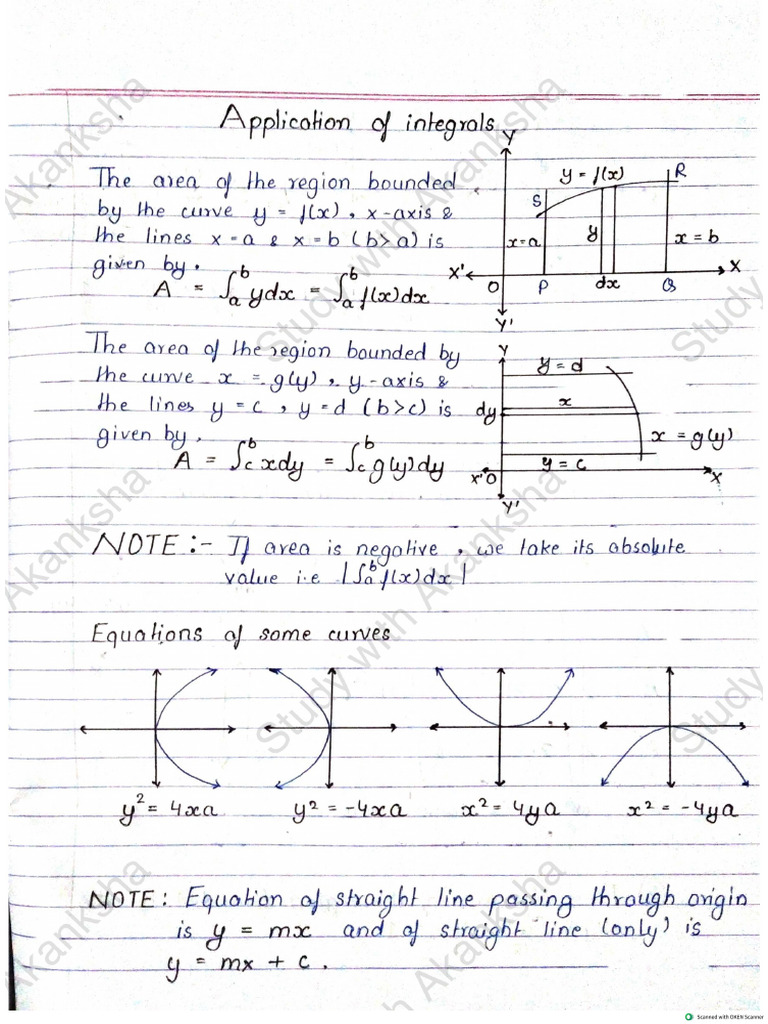 Application of integrals
The area of the region bounded
by the curve y = f(x), x-axis &
the lines x = a & x = b (b > a) is
given by.
A = ∫ₐᵇ ydx = ∫ₐᵇ f(x)dx
Y
y = f(x)
R
S
x = a
y
x = b
X'
X
O
P
dx
Q
Y'
The area of the region bounded by
the curve x = g(y), y-axis &
the lines y = c, y = d (b > c) is
given by.
A = ∫cᵇ xdy = ∫cᵇ g(y)dy
Y
y = d
dy
x
x = g(y)
y = c
X'
O
X
Y'
NOTE :- If area is negative, we take its absolute
value i.e |∫ₐᵇ f(x)dx|
Equations of some curves
y² = 4xa
y² = -4xa
x² = 4ya
x² = -4ya
NOTE: Equation of straight line passing through origin
is y = mx and of straight line (only) is
y = mx + c.
Study with Akanksha
Scanned with OKEN Scanner